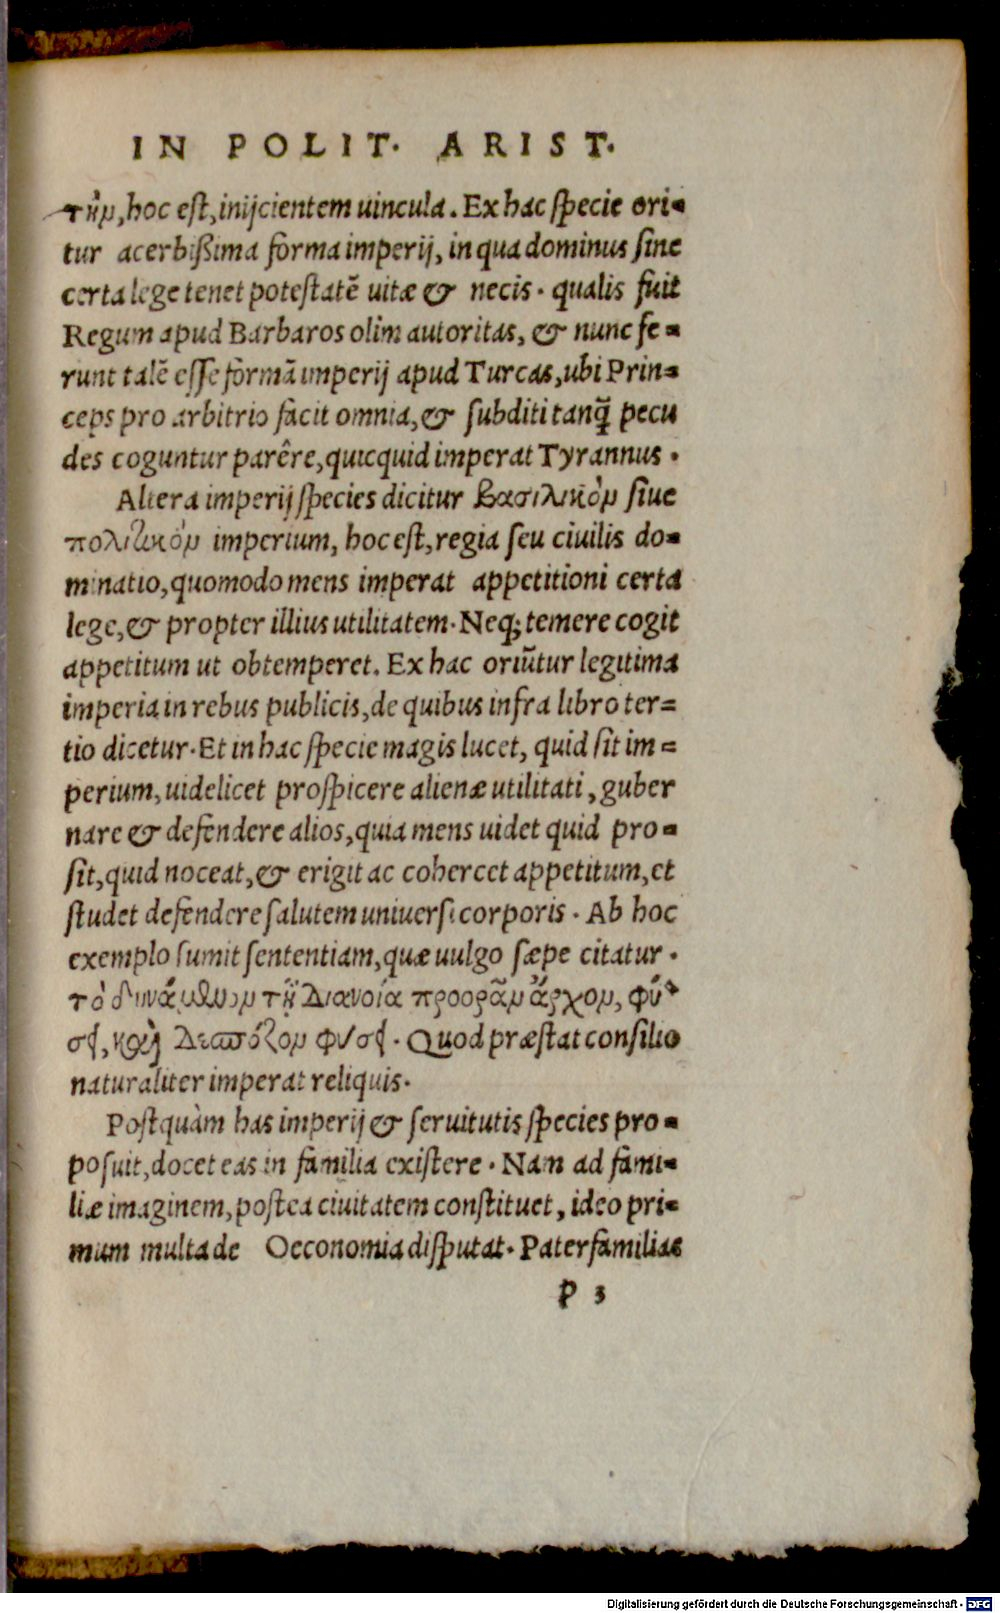 IN POLIT. ARIST.
τὴν, hoc est, inijcientem uincula. Ex hac specie ori-
tur acerbißima forma imperij, in qua dominus sine
certa lege tenet potestatē uitæ & necis. qualis fuit
Regum apud Barbaros olim autoritas, & nunc fe-
runt talē esse formā imperij apud Turcas, ubi Prin-
ceps pro arbitrio facit omnia, & subditi tanq̃ pecu
des coguntur parêre, quicquid imperat Tyrannus.
Altera imperij species dicitur βασιλικὸν siue
πολιτικὸν imperium, hoc est, regia seu ciuilis do-
minatio, quomodo mens imperat appetitioni certa
lege, & propter illius utilitatem. Neq; temere cogit
appetitum ut obtemperet. Ex hac oriūtur legitima
imperia in rebus publicis, de quibus infra libro ter-
tio dicetur. Et in hac specie magis lucet, quid sit im-
perium, uidelicet prospicere alienæ utilitati, guber
nare & defendere alios, quia mens uidet quid pro-
sit, quid noceat, & erigit ac cohercet appetitum, et
studet defendere salutem uniuersi corporis. Ab hoc
exemplo sumit sententiam, quæ uulgo sæpe citatur.
τὸ δυνάμενον τῇ διανοίᾳ προορᾶν ἄρχον, φύ-
σει, καὶ δεσπόζον φύσει. Quod præstat consilio
naturaliter imperat reliquis.
Postquàm has imperij & seruitutis species pro-
posuit, docet eas in familia existere. Nam ad fami-
liæ imaginem, postea ciuitatem constituet, ideo pri-
mum multa de Oeconomia disputat. Paterfamilias
P 3
Digitalisierung gefördert durch die Deutsche Forschungsgemeinschaft - DFG